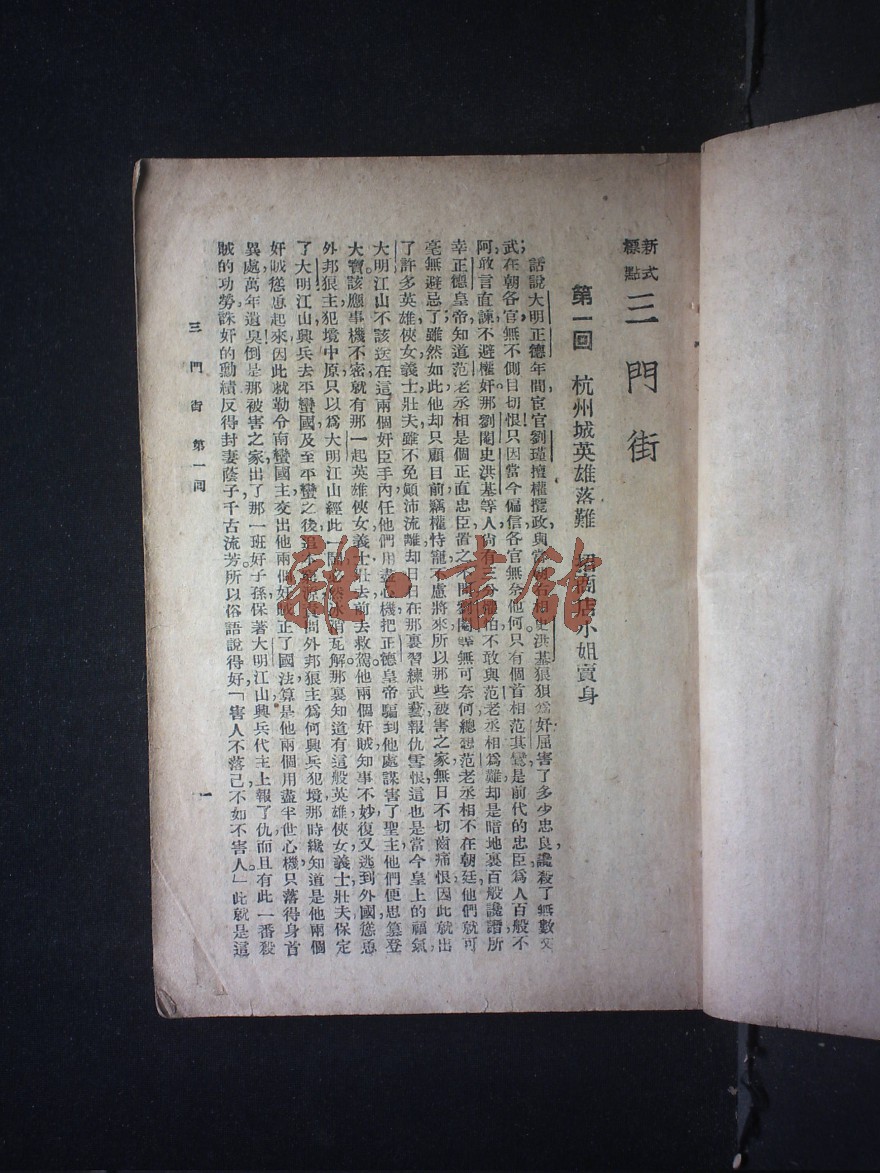 新式標點 三門街
第一回 杭州城英雄落難 招商店小姐賣身
話說大明正德年間宦官劉瑾擅權攬政與當朝右相史洪基狼狽為奸屈害了多少忠良讒殺了無數文
武在朝各官無不側目切恨只因當今偏信各官無奈他何只有個首相范其鸞是前代的忠臣為人百般不
阿敢言直諫不避權奸那劉瑾史洪基等人尚有三分懼怕不敢與范老丞相為難却是暗地裏百般讒譖所
幸正德皇帝知道范老丞相是個正直忠臣置之不問劉瑾等無可奈何總想范老丞相不在朝廷他們就可
毫無避忌了雖然如此他却只顧目前竊權恃寵不慮將來所以那些被害之家無日不切齒痛恨因此就出
了許多英雄俠女義士壯夫雖不免顛沛流離却日日在那裏習練武藝報仇雪恨這也是當今皇上的福氣
大明江山不該送在這兩個奸臣手內任他們用盡心機把正德皇帝騙到他處謀害了聖主他們便思篡登
大寶該應事機不密就有那一起英雄俠女義士壯去前去救駕他兩個奸賊知事不妙復又逃到外國慫恿
外邦狼主犯境中原只以為大明江山經此一鬧 冰消瓦解那裏知道有這般英雄俠女義士壯夫保定
了大明江山興兵去平蠻國及至平蠻之後 問外邦狼主為何興兵犯境那時纔知道是他兩個
奸賊慫恿起來因此就勒令南蠻國主交出他兩個奸賊正了國法算是他兩個用盡半世心機只落得身首
異處萬年遺臭倒是那被害之家出了那一班好子孫保著大明江山興兵代主上報了仇而且有此一番殺
賊的功勞誅奸的勳績反得封妻蔭子千古流芳所以俗語說得好「害人不落己不如不害人」此就是這
三門街 第一回
一
雜·書館